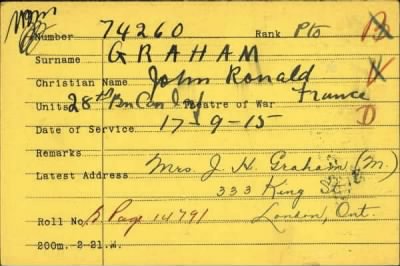 Number 74260 Rank Pte B
Surname GRAHAM
Christian Name John Ronald V
Units 28th Bn Can Inf Theatre of War France
Date of Service 17-9-15 D
Remarks
Latest Address Mrs. J. H. Graham (M.)
333 King St.
Roll No. B. Page 14791 London, Ont.
200m.-2-21.M.